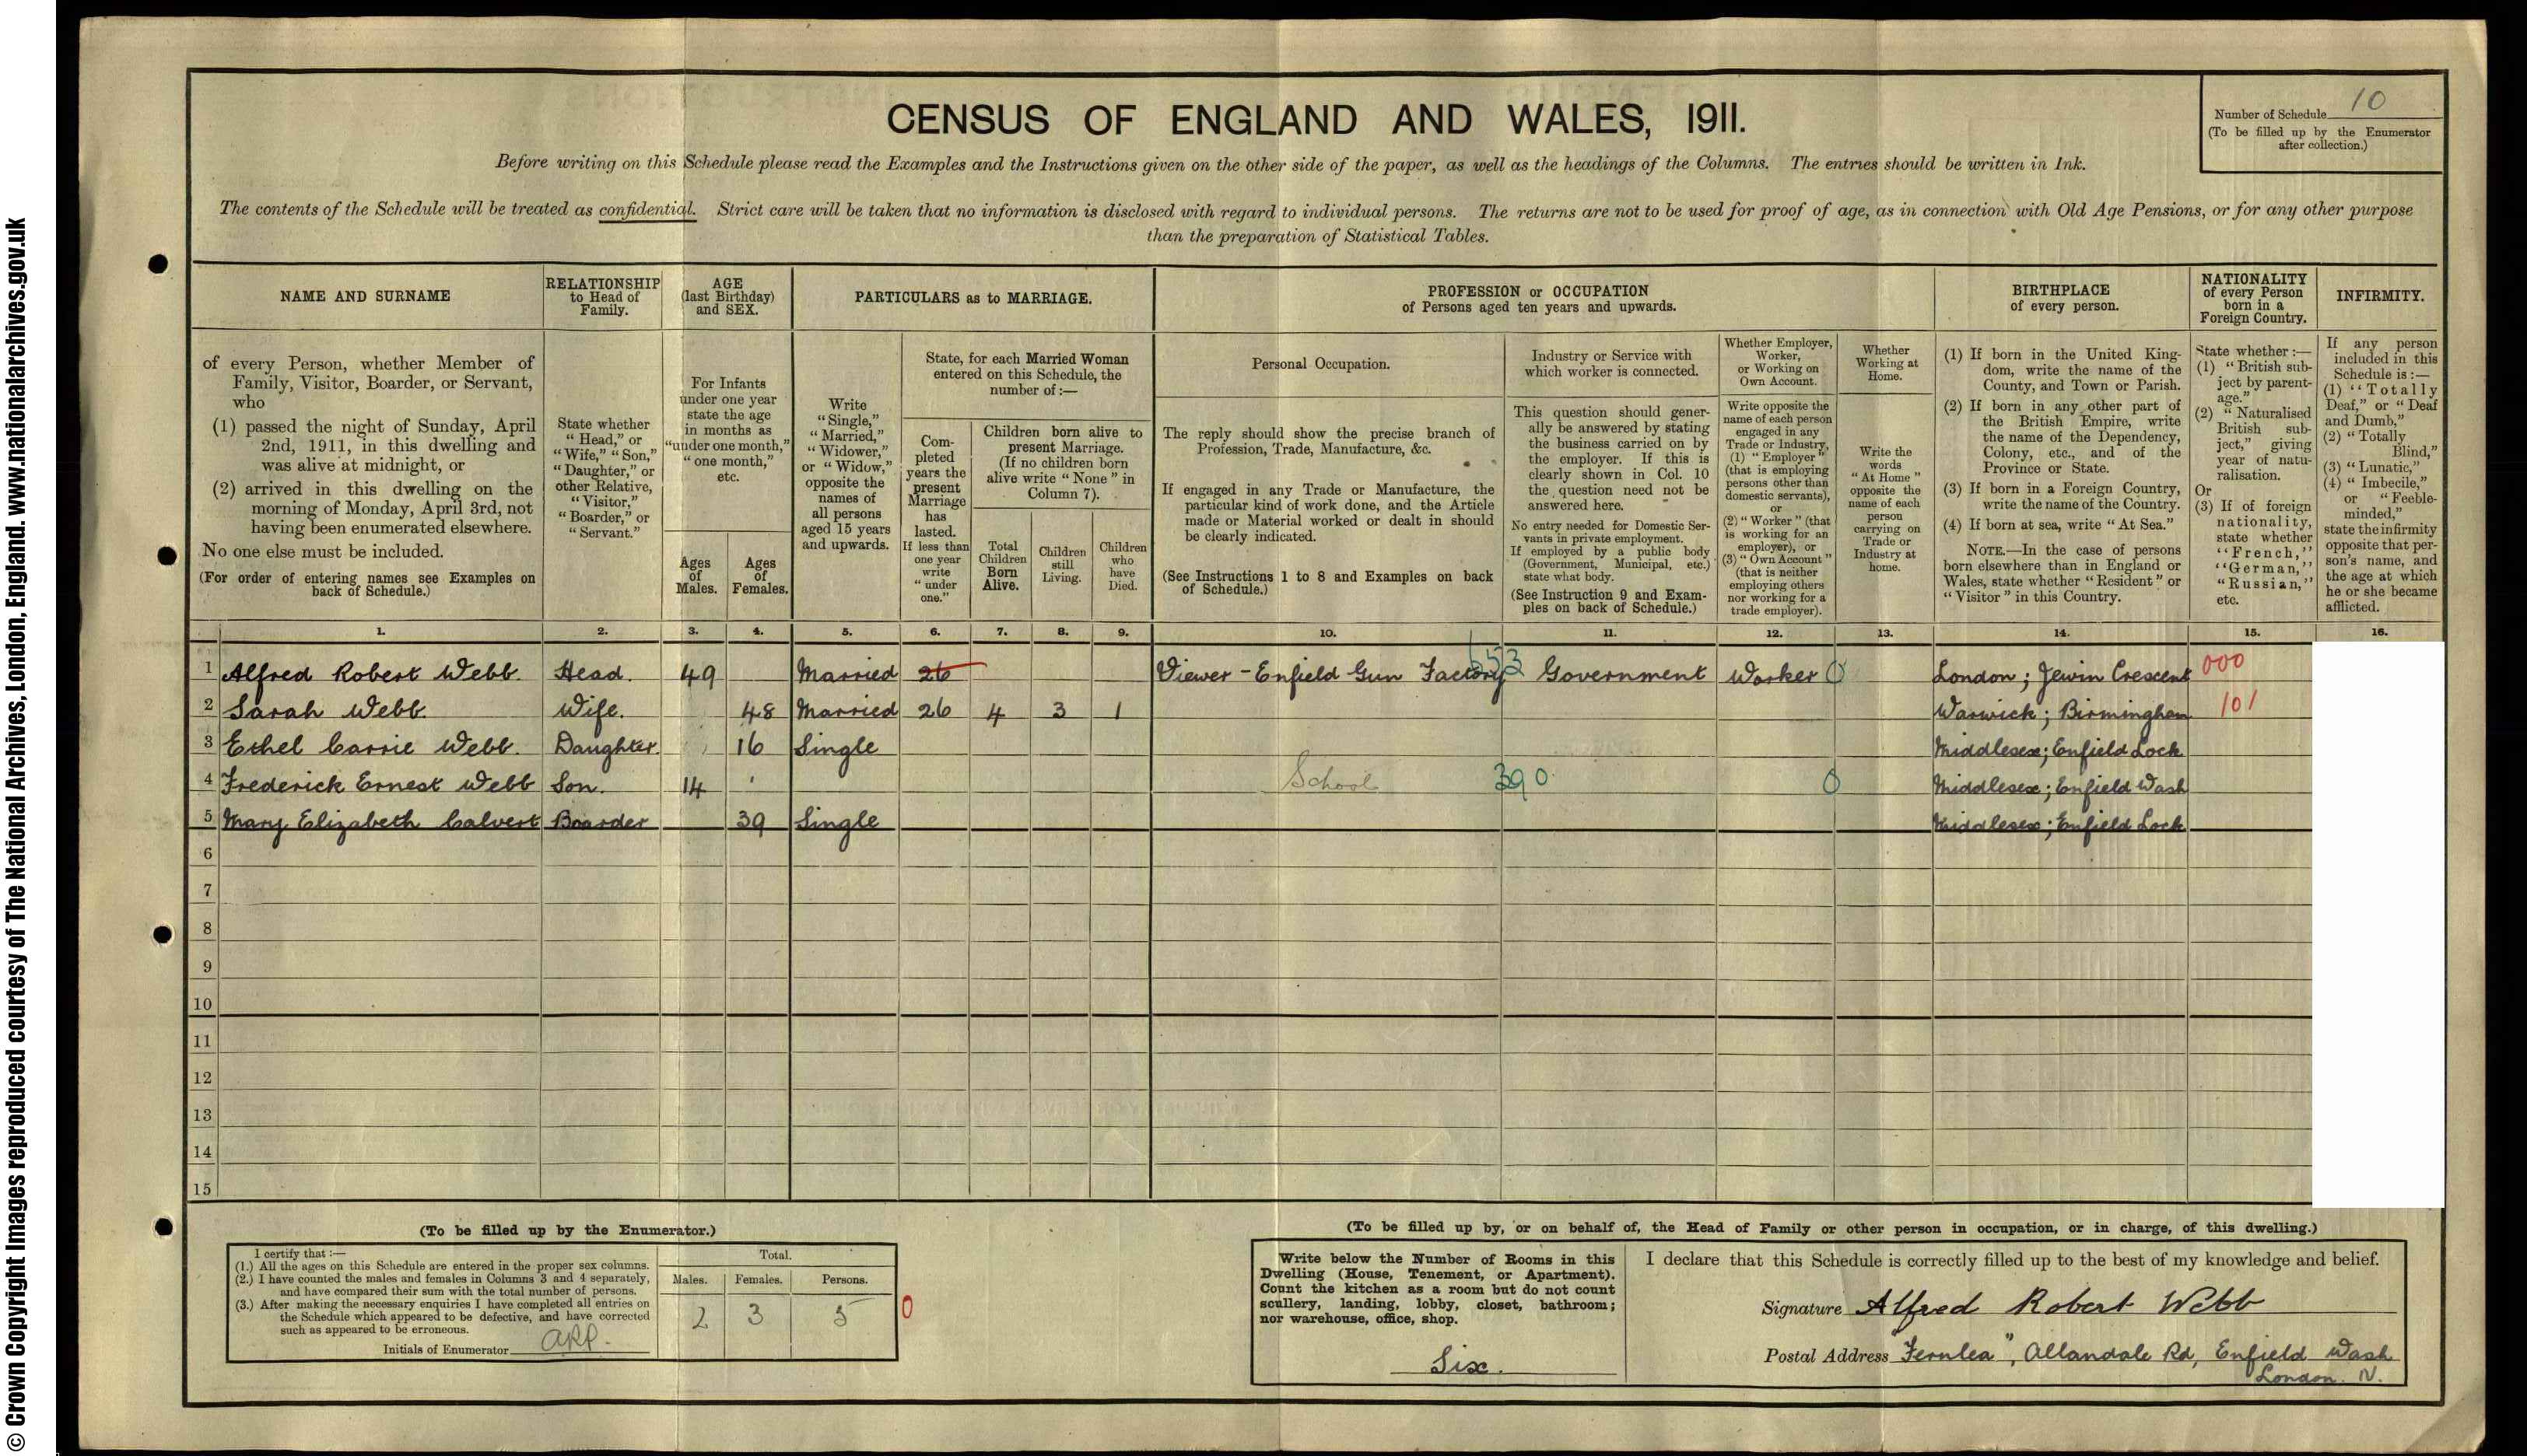 © Crown Copyright Images reproduced courtesy of The National Archives, London, England. www.nationalarchives.gov.uk
CENSUS OF ENGLAND AND WALES, 1911.
Number of Schedule 10
(To be filled up by the Enumerator
after collection.)
Before writing on this Schedule please read the Examples and the Instructions given on the other side of the paper, as well as the headings of the Columns. The entries should be written in Ink.
The contents of the Schedule will be treated as confidential. Strict care will be taken that no information is disclosed with regard to individual persons. The returns are not to be used for proof of age, as in connection with Old Age Pensions, or for any other purpose
than the preparation of Statistical Tables.
NAME AND SURNAME
of every Person, whether Member of
Family, Visitor, Boarder, or Servant,
who
(1) passed the night of Sunday, April
2nd, 1911, in this dwelling and
was alive at midnight, or
(2) arrived in this dwelling on the
morning of Monday, April 3rd, not
having been enumerated elsewhere.
No one else must be included.
(For order of entering names see Examples on
back of Schedule.)
RELATIONSHIP
to Head of
Family.
State whether
"Head," or
"Wife," "Son,"
"Daughter," or
other Relative,
"Visitor,"
"Boarder," or
"Servant."
AGE
(last Birthday)
and SEX.
For Infants
under one year
state the age
in months as
"under one month,"
"one month,"
etc.
Ages
of
Males.
Ages
of
Females.
PARTICULARS as to MARRIAGE.
Write
"Single,"
"Married,"
"Widower,"
or "Widow,"
opposite the
names of
all persons
aged 15 years
and upwards.
State, for each Married Woman
entered on this Schedule, the
number of:—
Com-
pleted
years the
present
Marriage
has
lasted.
If less than
one year
write
"under
one."
Children born alive to
present Marriage.
(If no children born
alive write "None" in
Column 7).
Total
Children
Born
Alive.
Children
still
Living.
Children
who
have
Died.
PROFESSION or OCCUPATION
of Persons aged ten years and upwards.
Personal Occupation.
The reply should show the precise branch of
Profession, Trade, Manufacture, &c.
If engaged in any Trade or Manufacture, the
particular kind of work done, and the Article
made or Material worked or dealt in should
be clearly indicated.
(See Instructions 1 to 8 and Examples on back
of Schedule.)
Industry or Service with
which worker is connected.
This question should gener-
ally be answered by stating
the business carried on by
the employer. If this is
clearly shown in Col. 10
the question need not be
answered here.
No entry needed for Domestic Ser-
vants in private employment.
If employed by a public body
(Government, Municipal, etc.)
state what body.
(See Instruction 9 and Exam-
ples on back of Schedule.)
Whether Employer,
Worker,
or Working on
Own Account.
Write opposite the
name of each person
engaged in any
Trade or Industry,
(1) "Employer"
(that is employing
persons other than
domestic servants),
or
(2) "Worker" (that
is working for an
employer), or
(3) "Own Account"
(that is neither
employing others
nor working for a
trade employer).
Whether
Working at
Home.
Write the
words
"At Home"
opposite the
name of each
person
carrying on
Trade or
Industry at
home.
BIRTHPLACE
of every person.
(1) If born in the United King-
dom, write the name of the
County, and Town or Parish.
(2) If born in any other part of
the British Empire, write
the name of the Dependency,
Colony, etc., and of the
Province or State.
(3) If born in a Foreign Country,
write the name of the Country.
(4) If born at sea, write "At Sea."
NOTE.—In the case of persons
born elsewhere than in England or
Wales, state whether "Resident" or
"Visitor" in this Country.
NATIONALITY
of every Person
born in a
Foreign Country.
State whether:—
(1) "British sub-
ject by parent-
age."
(2) "Naturalised
British sub-
ject," giving
year of natu-
ralisation.
Or
(3) If of foreign
nationality,
state whether
"French,"
"German,"
"Russian,"
etc.
INFIRMITY.
If any person
included in this
Schedule is:—
(1) "Totally
Deaf," or "Deaf
and Dumb,"
(2) "Totally
Blind,"
(3) "Lunatic,"
(4) "Imbecile,"
or "Feeble-
minded,"
state the infirmity
opposite that per-
son's name, and
the age at which
he or she became
afflicted.
1. 2. 3. 4. 5. 6. 7. 8. 9. 10. 11. 12. 13. 14. 15. 16.
1 Alfred Robert Webb. Head. 49 Married 26 Viewer - Enfield Gun Factory Government Worker 0 London; Jewin Crescent 000
2 Sarah Webb. Wife. 48 Married 26 4 3 1 Warwick; Birmingham 101
3 Ethel Carrie Webb. Daughter. 16 Single Middlesex; Enfield Lock
4 Frederick Ernest Webb Son. 14 School 390 0 Middlesex; Enfield Wash
5 Mary Elizabeth Calvert Boarder 39 Single Middlesex; Enfield Lock
6
7
8
9
10
11
12
13
14
15
(To be filled up by the Enumerator.)
I certify that:—
(1.) All the ages on this Schedule are entered in the proper sex columns.
(2.) I have counted the males and females in Columns 3 and 4 separately,
and have compared their sum with the total number of persons.
(3.) After making the necessary enquiries I have completed all entries on
the Schedule which appeared to be defective, and have corrected
such as appeared to be erroneous.
Initials of Enumerator
Total.
Males. Females. Persons.
2 3 5 0
(To be filled up by, or on behalf of, the Head of Family or other person in occupation, or in charge, of this dwelling.)
Write below the Number of Rooms in this
Dwelling (House, Tenement, or Apartment).
Count the kitchen as a room but do not count
scullery, landing, lobby, closet, bathroom;
nor warehouse, office, shop.
Six.
I declare that this Schedule is correctly filled up to the best of my knowledge and belief.
Signature Alfred Robert Webb
Postal Address "Fernlea", Allandale Rd, Enfield Wash
London. N.